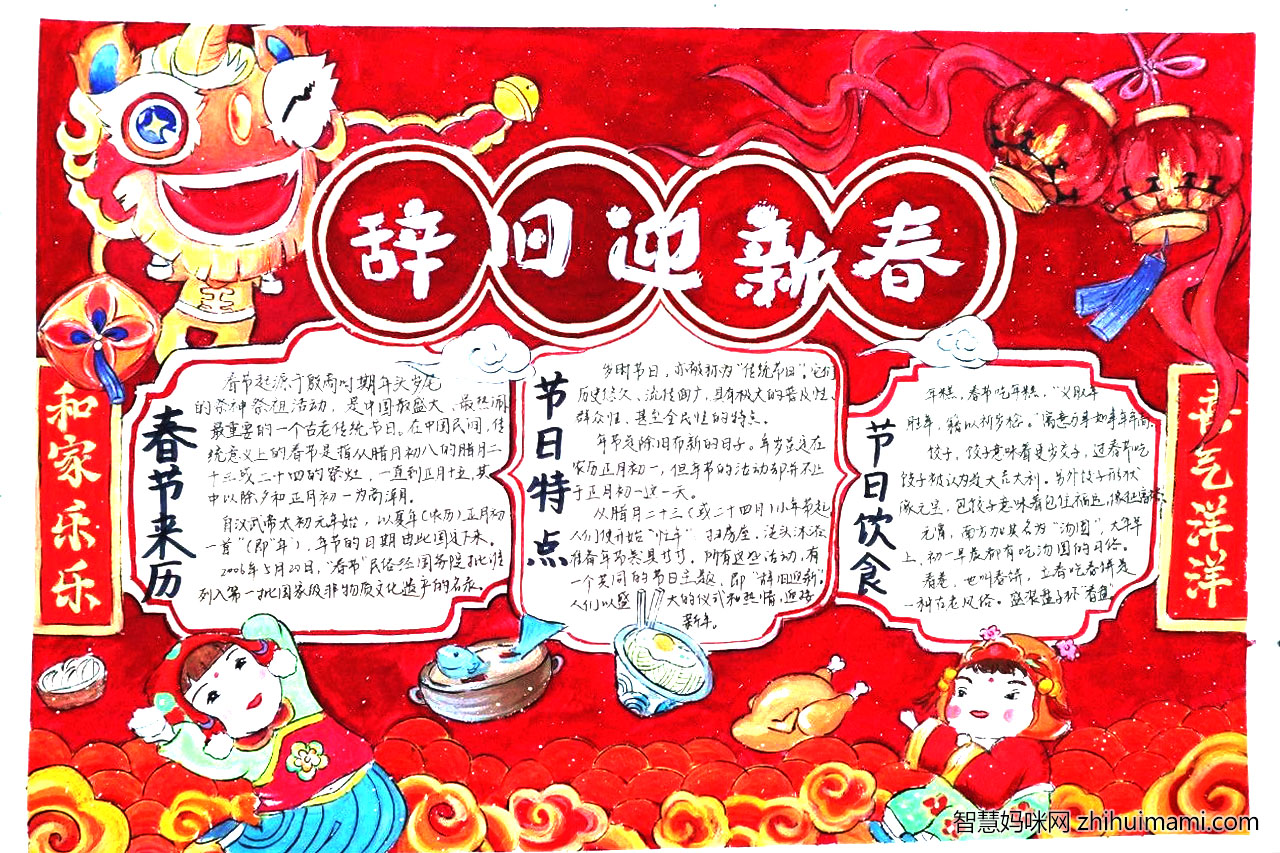 辞旧迎新春
和家乐乐
春节来历
春节起源于殷商时期年头岁尾
的祭神祭祖活动，是中国最盛大、最热闹
最重要的一个古老传统节日。在中国民间，传
统意义上的春节是指从腊月初八的腊月二
十三或二十四的祭灶，一直到正月十五，其
中以除夕和正月初一为高潮。
自汉武帝太初元年始，以夏年（农历）正月初
一首"（即"年），年节的日期由此固定下来。
2006年5月20日，"春节"民俗经国务院批准
列入第一批国家级非物质文化遗产的名录。
节日特点
岁时节日，亦被称为"传统节日"。它们
历史悠久、流传面广，具有极大的普及性、
群众性、甚至全民性的特点。
年节是除旧布新的日子。年岁虽定在
农历正月初一，但年节的活动却并不止
于正月初一这一天。
从腊月二十三（或二十四月）小年节起
人们便开始"忙年"：扫房屋、洗头沐浴
准备年节器具等等。所有这些活动，有
一个共同的节日主题，即"辞旧迎新"。
人们以盛大的仪式和热情，迎接
新年。
节日饮食
年糕，春节吃年糕，"义取年
胜年，籍以祈岁稔。"寓意万事如意年年高
饺子，饺子意味着更岁交子，过春节吃
饺子被认为是大吉大利。另外饺子形状
像元宝，包饺子意味着包住福运，
元宵，南方如其名为"汤圆"，大年早
上，初一早晨都有吃汤圆的习俗。
春卷，也叫春饼，立春吃春饼是
一种古老风俗。盛装盘子称"春盘"
喜气洋洋
智慧妈咪网 zhihuimami.com